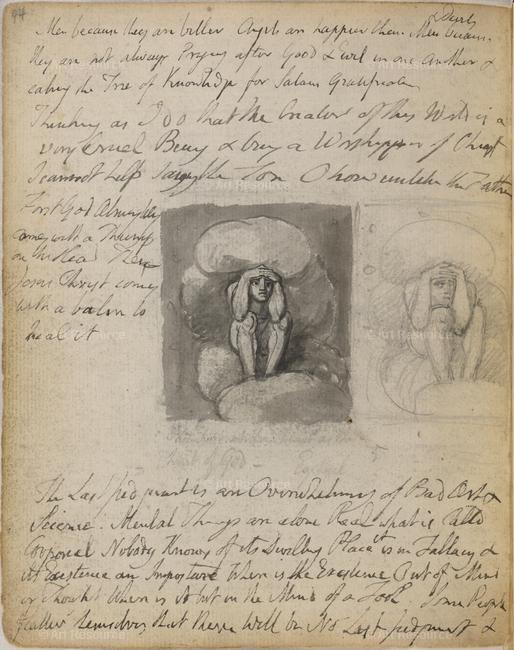 94
& Devils
Men because they are better Angels are happier than Men because
they are not always Prying after Good & Evil in one Another &
eating the Tree of Knowledge for Satans Gratification
Thinking as I do that the Creator of this World is a
very Cruel Being & being a Worshipper of Christ
I cannot help saying the Son O how unlike the Father
First God Almighty
comes with a Thump
on the Head Then
Jesus Christ comes
with a balm to
heal it
heart of God — Ezekiel
5
The Last Judgment is an Overwhelming of Bad Art &
Science. Mental Things are alone Real what is Calld
Corporeal Nobody Knows of its Dwelling Place it is in Fallacy &
its Existence an Imposture Where is the Existence Out of Mind
or Thought Where is it but in the Mind of a Fool Some People
flatter themselves that there will be No Last Judgment &
© Art Resource